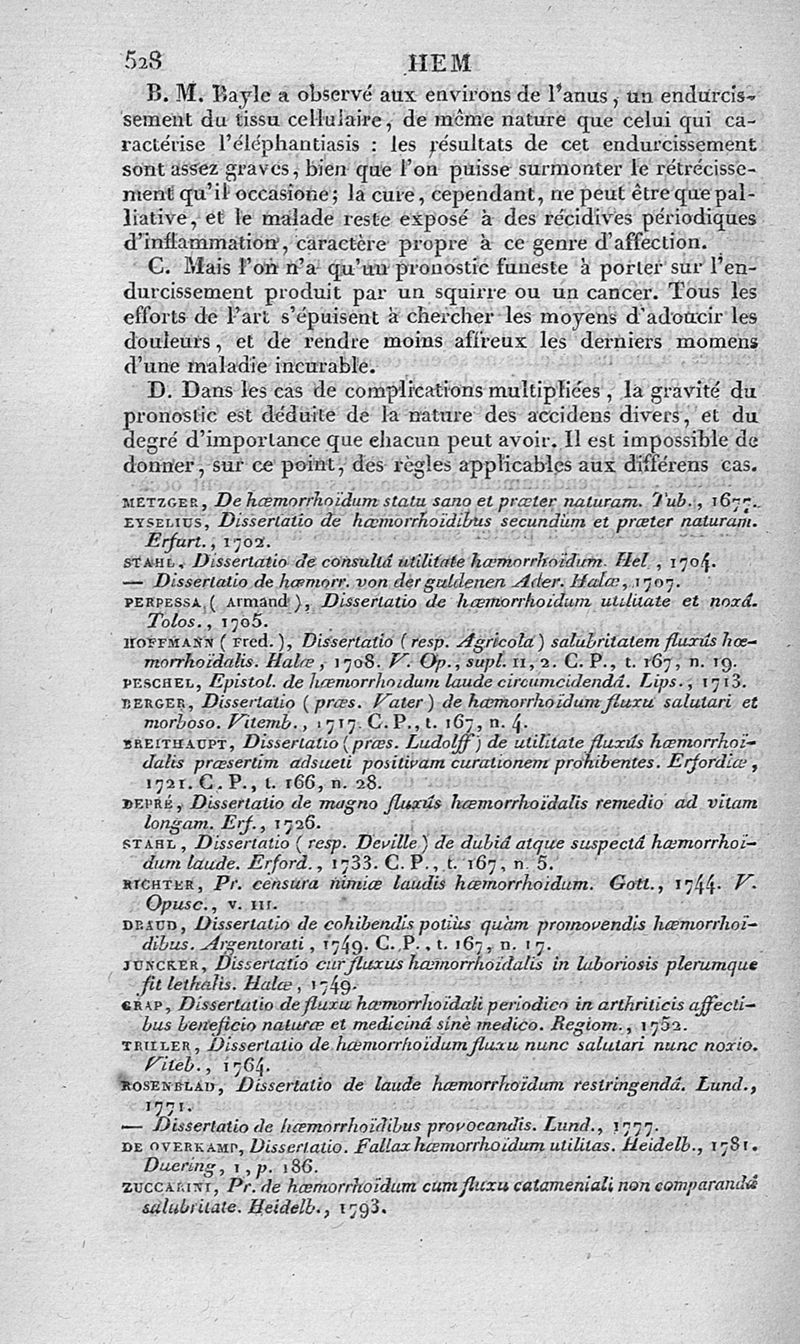 528 HEM
B. M. Bayle a observé aux environs de l'anus, un endurcis-
sement du tissu cellulaire, de même nature que celui qui ca-
ractérise l'éléphantiasis : les résultats de cet endurcissement
sont assez graves, bien que l'on puisse surmonter le rétrécisse-
ment qu'il occasione; la cure, cependant, ne peut être que pal-
liative, et le malade reste exposé à des récidives périodiques
d'inflammation, caractère propre à ce genre d'affection.
C. Mais l'on n'a qu'un pronostic funeste à porter sur l'en-
durcissement produit par un squirre ou un cancer. Tous les
efforts de l'art s'épuisent à chercher les moyens d'adoucir les
douleurs, et de rendre moins affreux les derniers momens
d'une maladie incurable.
D. Dans les cas de complications multipliées, la gravité du
pronostic est déduite de la nature des accidens divers, et du
degré d'importance que chacun peut avoir. Il est impossible de
donner, sur ce point, des règles applicables aux différens cas.
METZGER, De hæmorrhoidum statu sano et præter naturam. Tub., 1677.
EYSELIUS, Dissertatio de hæmorrhoidibus secundùm et præter naturam.
Erfurt., 1702.
STAHL, Dissertatio de consultâ utilitate hæmorrhoïdum. Hel , 1704.
— Dissertatio de hæmorr. von der guldenen Ader. Halæ, 1707.
PERPESSA ( Armand ), Dissertatio de hæmorrhoidum utilitate et noxâ.
Tolos., 1705.
HOFFMANN ( Fred. ), Dissertatio ( resp. Agricola ) salubritatem fluxûs hæ-
morrhoïdalis. Halæ, 1708. V. Op., supl. II, 2. C. P., t. 167, n. 19.
PESCHEL, Epistol. de hæmorrhoidum laude circumcidendâ. Lips., 1713.
BERGER, Dissertatio ( præs. Vater ) de hæmorrhoidum fluxu salutari et
morboso. Vitemb., 1717. C. P., t. 167, n. 4.
BREITHAUPT, Dissertatio ( præs. Ludolff ) de utilitate fluxûs hæmorrhoï-
dalis præsertim adsueti positivam curationem prohibentes. Erfordiæ,
1721. C. P., t. 166, n. 28.
DEPRÉ, Dissertatio de magno fluxûs hæmorrhoïdalis remedio ad vitam
longam. Erf., 1726.
STAHL, Dissertatio ( resp. Deville ) de dubiâ atque suspectâ hæmorrhoï-
dum laude. Erford., 1733. C. P., t. 167, n. 5.
RICHTER, Pr. censura nimiæ laudis hæmorrhoidum. Gott., 1744. V.
Opusc., v. III.
DRAUD, Dissertatio de cohibendis potiùs quàm promovendis hæmorrhoï-
dibus. Argentorati, 1749. C. P., t. 167, n. 17.
JUNCKER, Dissertatio cur fluxus hæmorrhoïdalis in laboriosis plerumque
fit lethalis. Halæ, 1749.
GRAP, Dissertatio de fluxu hæmorrhoïdali periodico in arthriticis affecti-
bus beneficio naturæ et medicinâ sinè medico. Regiom., 1752.
TRILLER, Dissertatio de hæmorrhoïdum fluxu nunc salutari nunc noxio.
Viteb., 1764.
ROSENBLAD, Dissertatio de laude hæmorrhoïdum restringendâ. Lund.,
1771.
— Dissertatio de hæmorrhoïdibus provocandis. Lund., 1777.
DE OVERKAMP, Dissertatio. Fallax hæmorrhoidum utilitas. Heidelb., 1781.
Duering, 1, p. 186.
ZUCCARINI, Pr. de hæmorrhoïdum cum fluxu catameniali non comparandâ
salubritate. Heidelb., 1793.